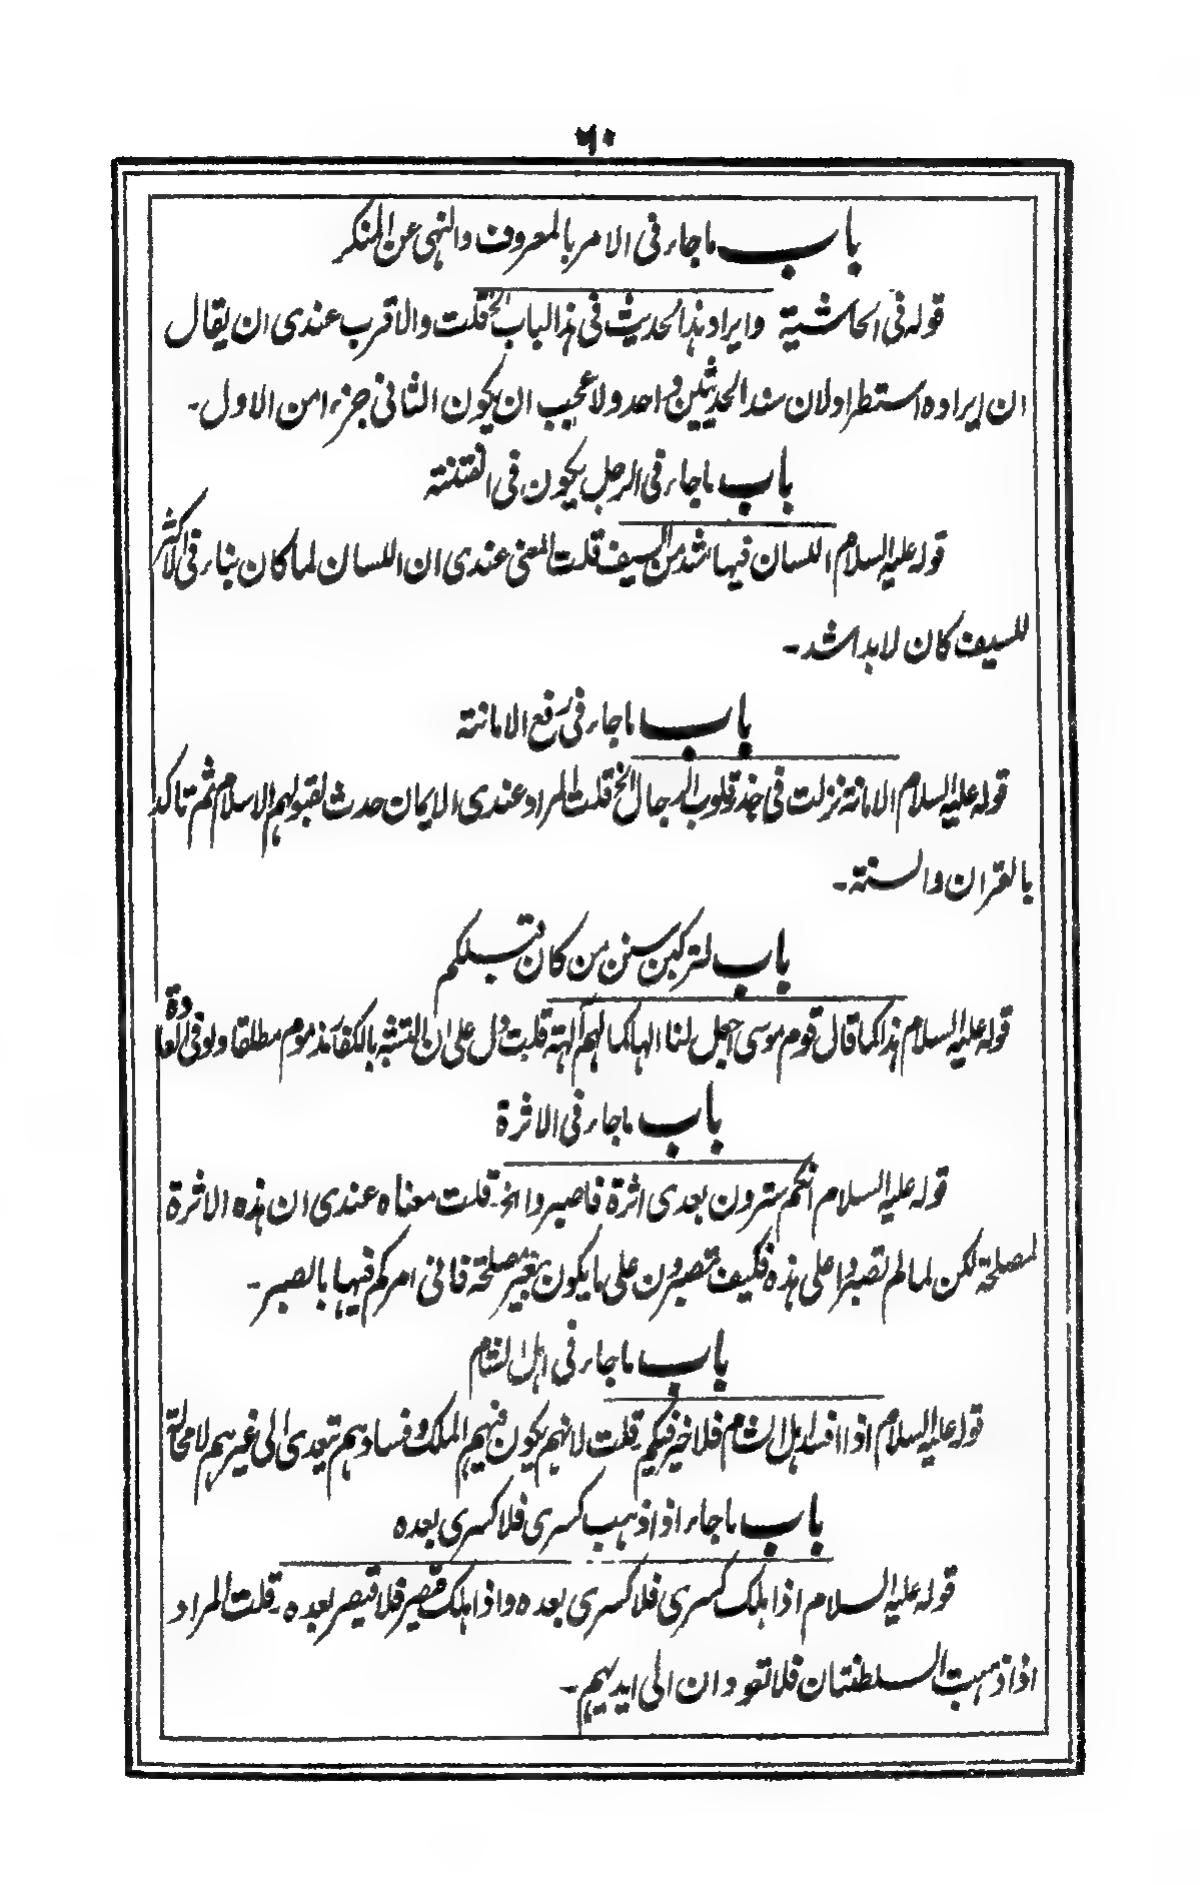 ٦٠
باب ماجاء فی الامر بالمعروف والنہی عن المنکر
قولہ فی الحاشیۃ وایراد ہذا الحدیث فی ہذا الباب الخ قلت والاقرب عندی ان یقال
ان ایرادہ استطراد لان سند الحدیثین واحد ولا عجیب ان یکون الثانی جزءا من الاول۔
باب ماجاء فی الرجل یکون فی الفتنتہ
قولہ علیہ السلام اللسان فیہا اشد من السیف قلت المعنی عندی ان اللسان لما کان بناء فی الاکثر
للسیف کان لابد اشد۔
باب ماجاء فی رفع الامانتہ
قولہ علیہ السلام الامانتہ نزلت فی جذر قلوب الرجال الخ قلت المراد عندی الایمان حدث لقبولہم الاسلام ثم تاکد
بالقران والسنتہ۔
باب لترکبن سنن من کان قبلکم
قولہ علیہ السلام ہذا کما قال قوم موسی اجعل لنا الہا کما لہم آلہتہ قلت دل علی ان التشبہ بالکفار مذموم مطلقا ولو فی العادۃ
باب ماجاء فی الاثرۃ
قولہ علیہ السلام انکم سترون بعدی اثرۃ فاصبروا الخ۔ قلت معناہ عندی ان ہذہ الاثرۃ
لمصلحۃ لکن لما لم تصبروا علی ہذہ فکیف تصبرون علی ما یکون بغیر مصلحۃ فانی امرکم فیہا بالصبر۔
باب ماجاء فی اہل الشام
قولہ علیہ السلام اذا افسد اہل الشام فلا خیر فیکم۔ قلت لانہم یکون فیہم الملک وفسادہم یتعدی الی غیرہم لا محالۃ
باب ماجاء اذا ذہب کسری فلا کسری بعدہ
قولہ علیہ السلام اذا ہلک کسری فلا کسری بعدہ واذا ہلک قیصر فلا قیصر بعدہ۔ قلت المراد
اذا ذہبت السلطنتان فلا تعودان الی ایدیہم۔